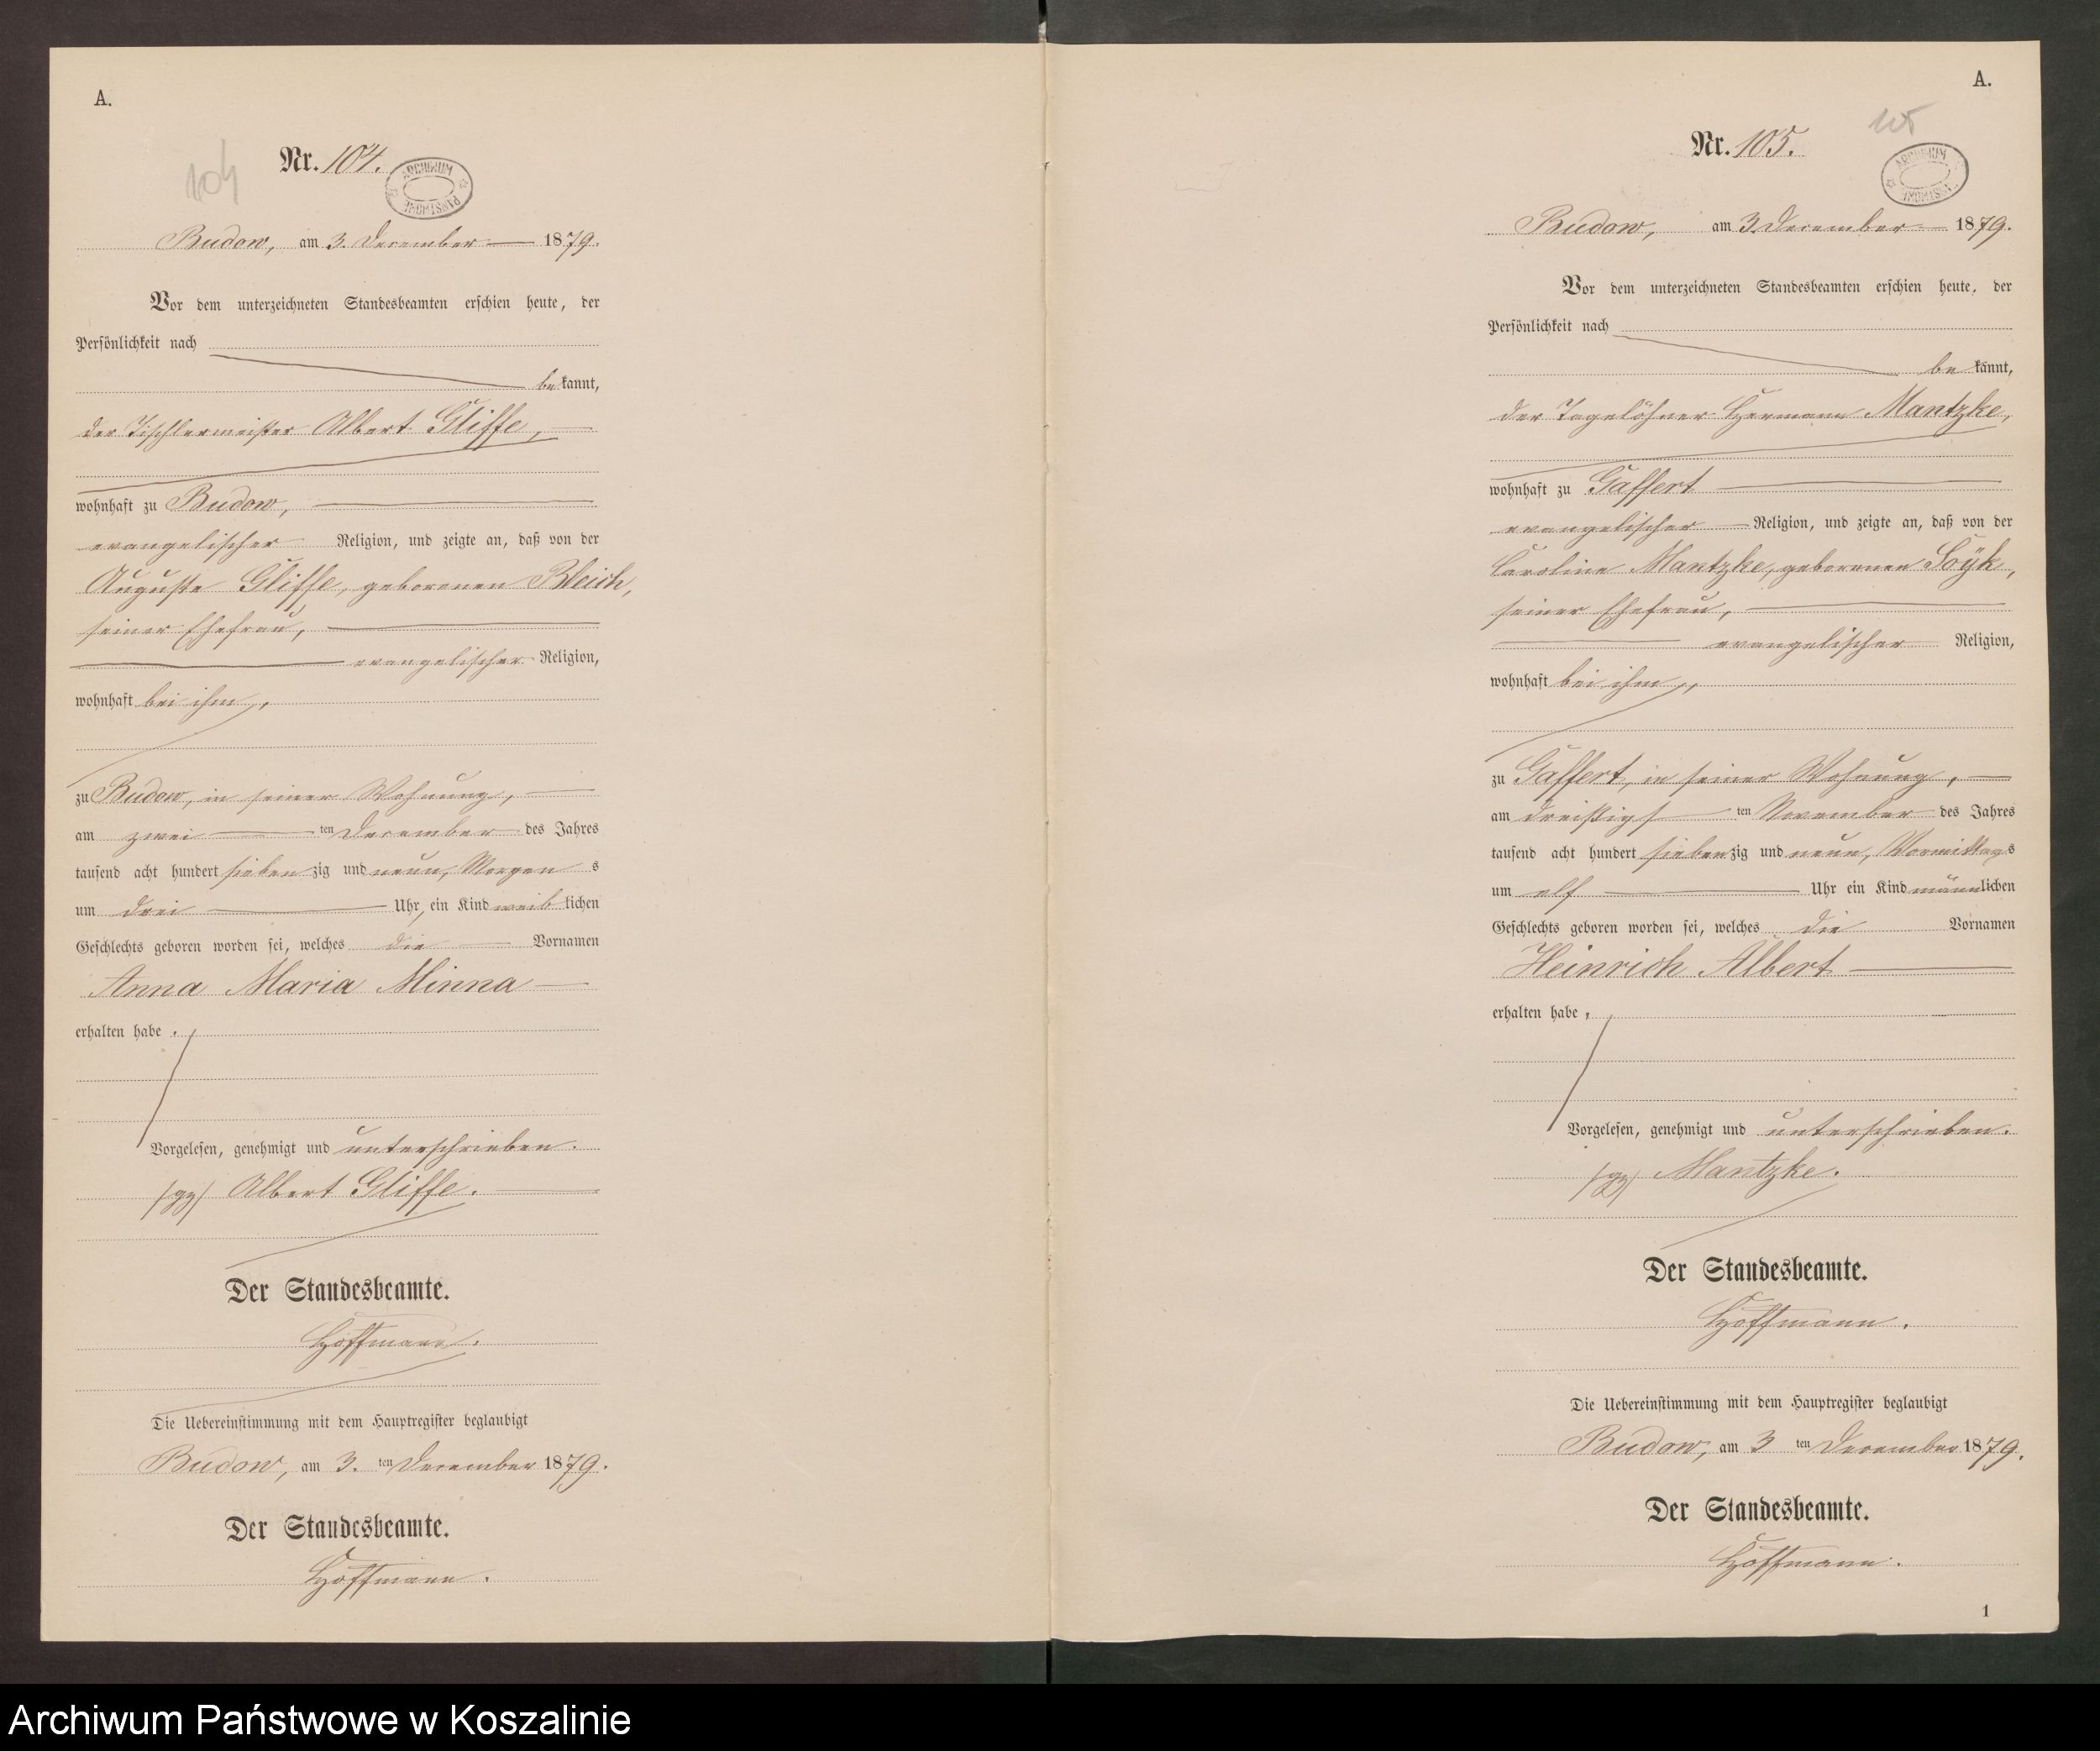 A.
104
Nr. 104.
ARCHIWUM PAŃSTWOWE
Budow, am 3. December 1879.
Vor dem unterzeichneten Standesbeamten erschien heute, der
Persönlichkeit nach
be kannt,
der Tischlermeister Albert Gliffe,
wohnhaft zu Budow,
evangelischer Religion, und zeigte an, daß von der
Auguste Gliffe, geborenen Bleich,
seiner Ehefrau,
evangelischer Religion,
wohnhaft bei ihm,
zu Budow, in seiner Wohnung,
am zwei ten December des Jahres
tausend acht hundert sieben zig und neun, Morgen s
um drei Uhr, ein Kind weib lichen
Geschlechts geboren worden sei, welches die Vornamen
Anna Maria Minna
erhalten habe.
Vorgelesen, genehmigt und unterschrieben.
(gz) Albert Gliffe.
Der Standesbeamte.
Hoffmann.
Die Uebereinstimmung mit dem Hauptregister beglaubigt
Budow, am 3. ten December 1879.
Der Standesbeamte.
Hoffmann.
A.
105
Nr. 105.
ARCHIWUM PAŃSTWOWE
Budow, am 3. December 1879.
Vor dem unterzeichneten Standesbeamten erschien heute, der
Persönlichkeit nach
be kannt,
der Tagelöhner Hermann Mantzke,
wohnhaft zu Gaffert
evangelischer Religion, und zeigte an, daß von der
Caroline Mantzke, geborenen Söÿk,
seiner Ehefrau,
evangelischer Religion,
wohnhaft bei ihm,
zu Gaffert, in seiner Wohnung,
am dreißigs ten November des Jahres
tausend acht hundert sieben zig und neun, Vormittag s
um elf Uhr ein Kind männ lichen
Geschlechts geboren worden sei, welches die Vornamen
Heinrich Albert
erhalten habe,
Vorgelesen, genehmigt und unterschrieben.
(gz) Mantzke.
Der Standesbeamte.
Hoffmann.
Die Uebereinstimmung mit dem Hauptregister beglaubigt
Budow, am 3 ten December 1879.
Der Standesbeamte.
Hoffmann.
1
Archiwum Państwowe w Koszalinie